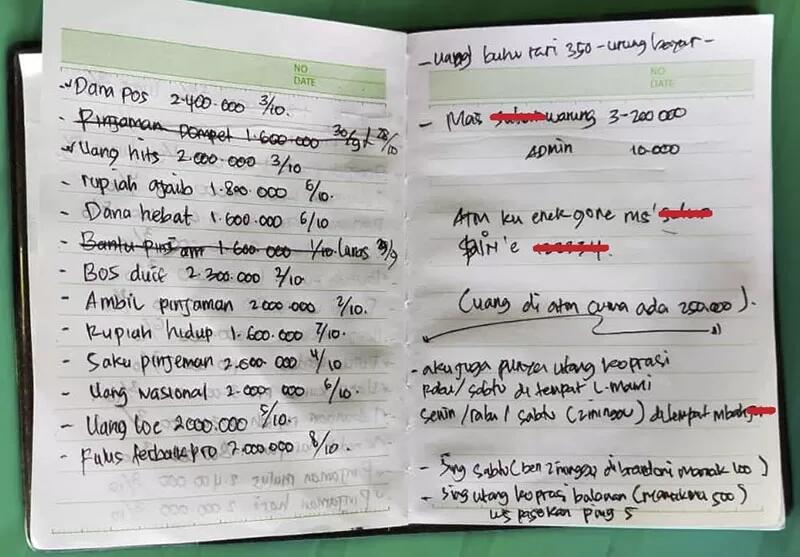 NO
DATE
- Dana pos 2.400.000 3/10.
- Pinjaman Dompet 1.600.000 30/9 28/10
- Uang hits 2.000.000 3/10
- rupiah ajaib 1.800.000 6/10.
- Dana hebat 1.600.000 6/10
- Bantu pinjam 1.600.000 1/10 lunas 29/9
- Bos duit 2.300.000 2/10.
- Ambil pinjaman 2000.000 2/10.
- Rupiah hidup 1.600.000 7/10.
- Saku pinjeman 2.600 000 4/10
- Uang Nasional 2.000 000 6/10
- Uang loc 2000.000 5/10.
- Fulus terbaik pro 2.000.000 8/10
- uang buku tari 350 - urung bayar -
NO
DATE
- Mas warung 3-200 000
ADMIN 10.000
ATM ku enek gone ms'
PIN'e
(uang di atm cuma ada 250.000).
- aku juga punya utang koprasi
Rabu/sabtu di tempat L-mami
senin/rabu/sabtu (2 minggu) ditempat mbah
- Sing sabtu (ben 2 minggu di 100)
- Sing utang koprasi balonan (500)
ws pasokan ping 5